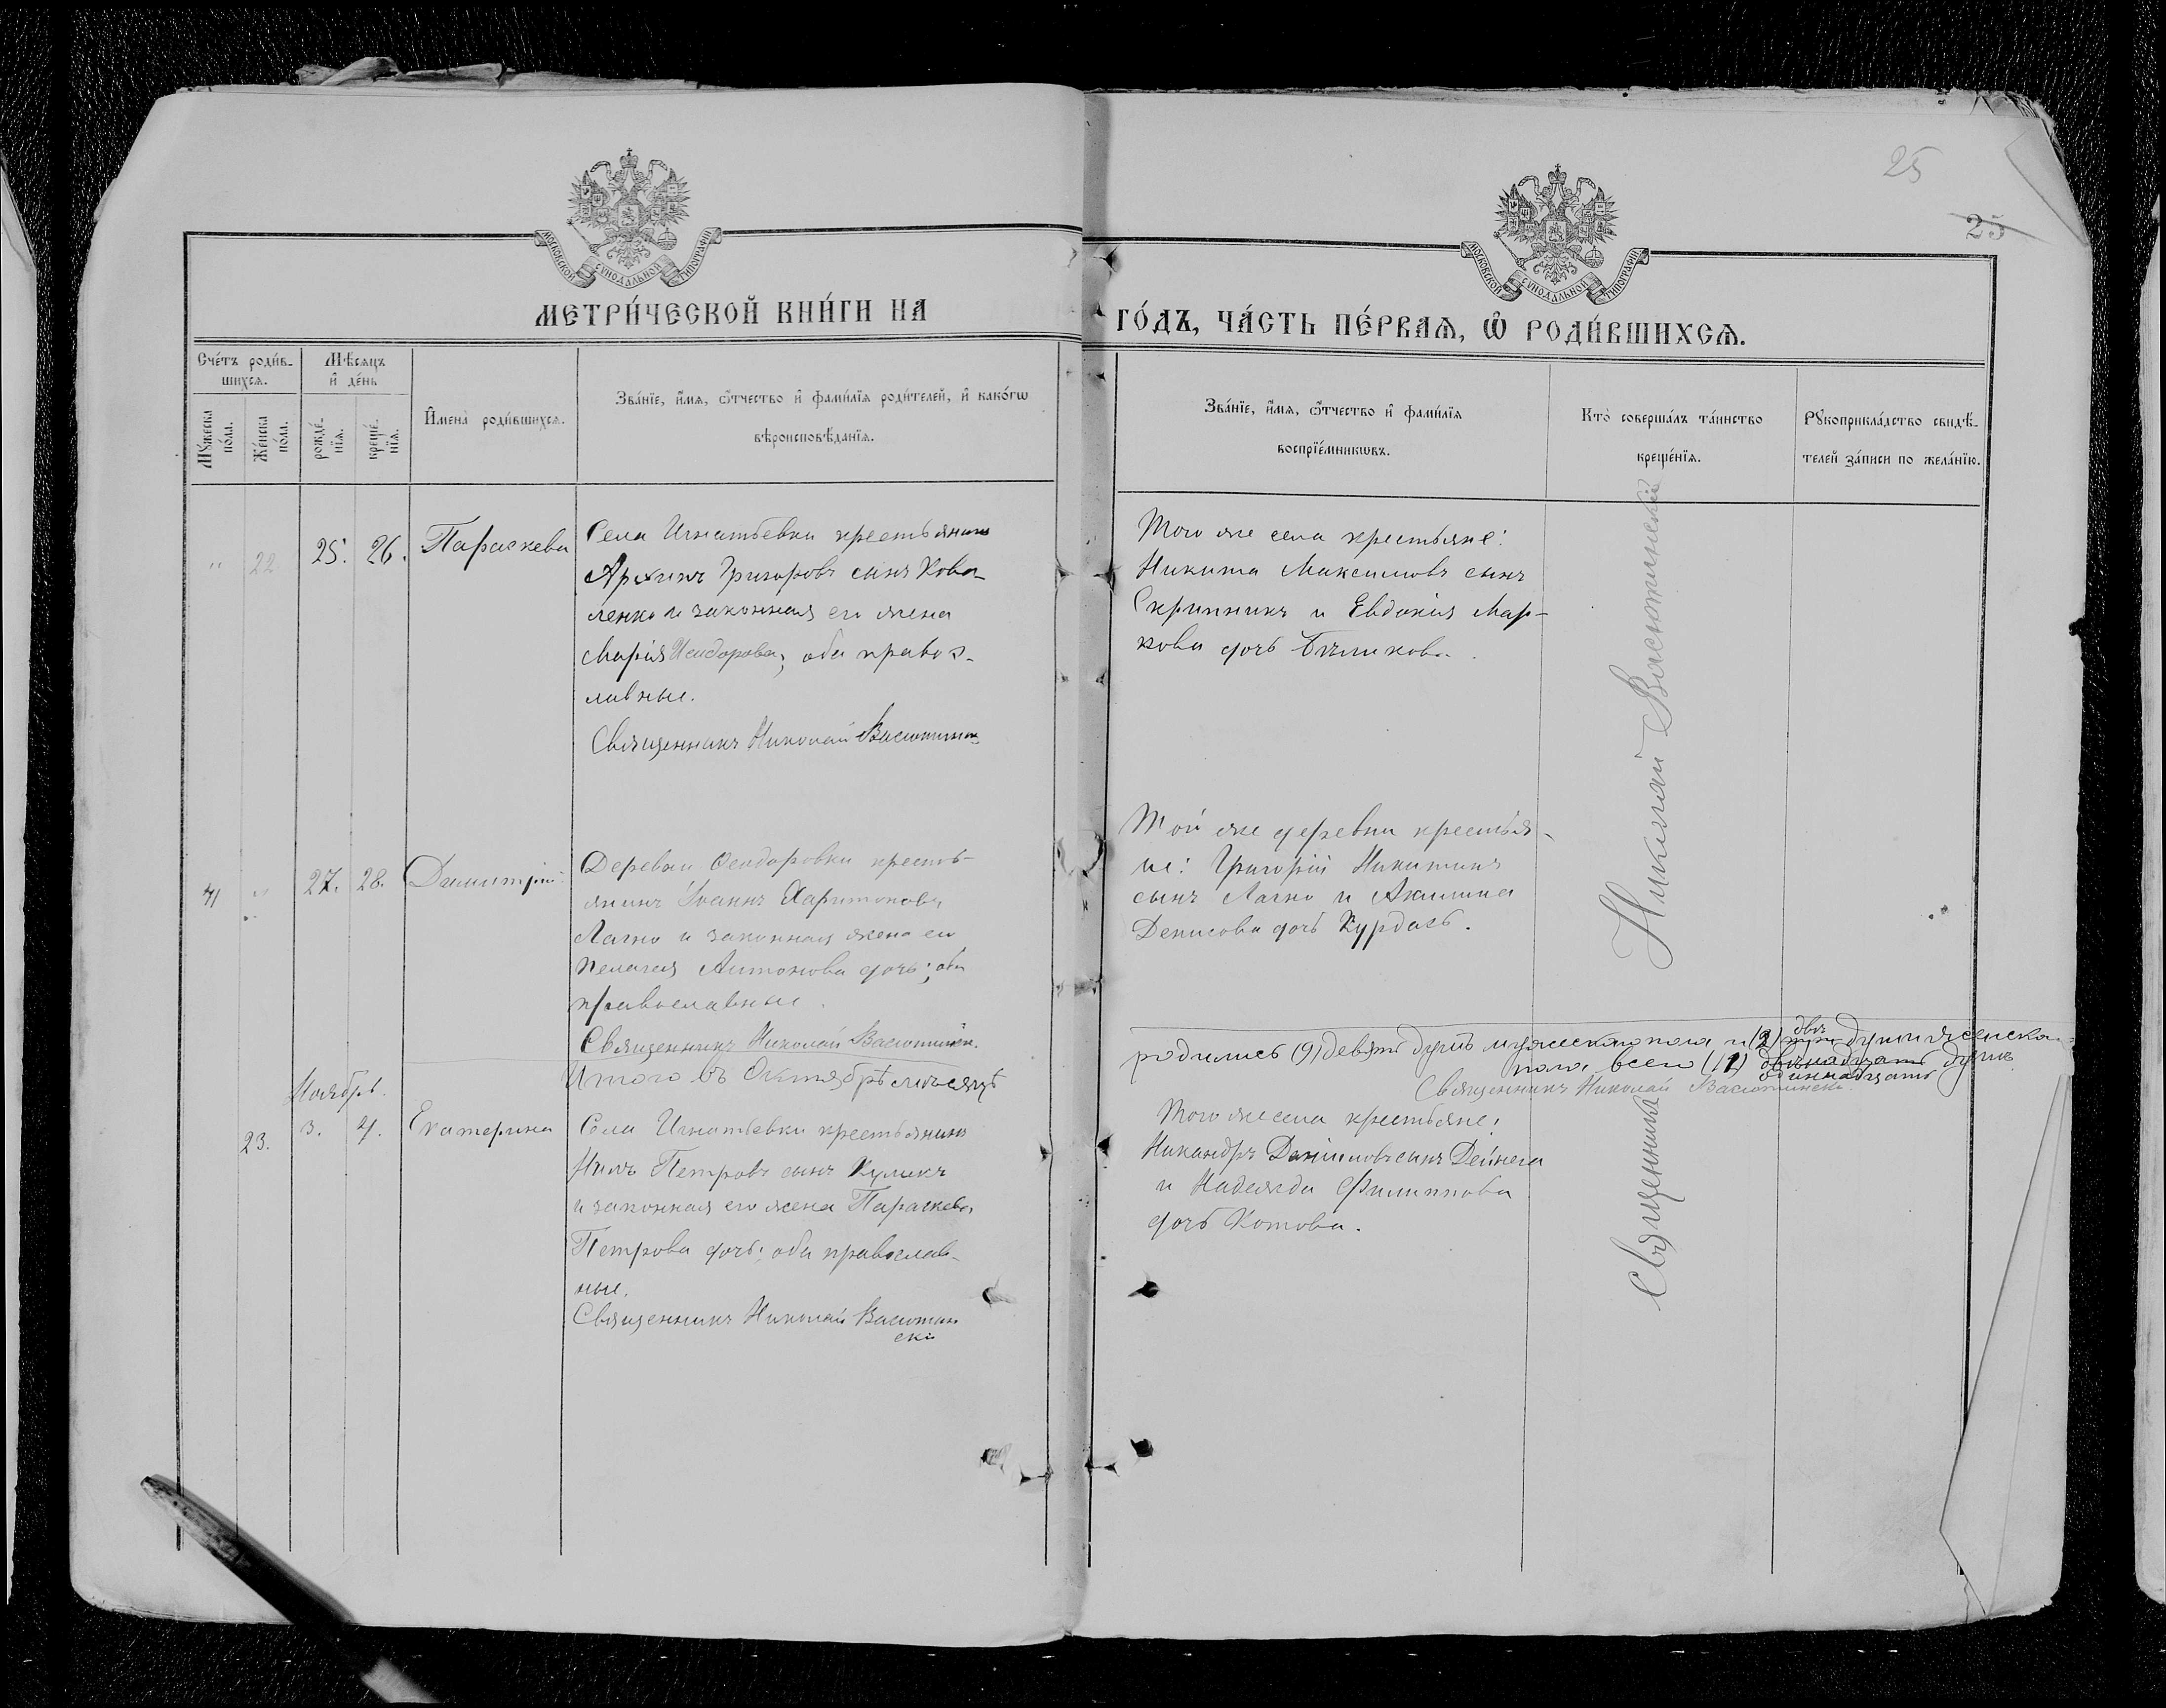 25
25
МОСКОВСКОЙ СѴНОДАЛЬНОЙ ТИПОГРАФІИ
МОСКОВСКОЙ СѴНОДАЛЬНОЙ ТИПОГРАФІИ
МЕТРИ́ЧЕСКОЙ КНИ́ГИ НА
ГО́ДЪ, ЧА́СТЬ ПЕ́РВАѦ, Ѡ҆ РОДИ́ВШИХСѦ.
Сче́тъ роди́в-
шихсѧ.
Мѣ́сѧцъ
и҆ де́нь
Мꙋ́жеска
по́ла.
Же́нска
по́ла.
рожде́-
нїѧ.
креще́-
нїѧ.
И҆мена̀ роди́вшихсѧ.
Зва́нїе, и҆́мѧ, ѻ҆́тчество и҆ фами́лїѧ роди́телей, и҆ како́гѡ
вѣроисповѣ́данїѧ.
Зва́нїе, и҆́мѧ, ѻ҆́тчество и҆ фами́лїѧ
воспрїе́мникѡвъ.
Кто̀ соверша́лъ та́инство
креще́нїѧ.
Рꙋкоприкла́дство свидѣ́-
телей за́писи по жела́нїю.
" 22 25. 26. Параскева
Села Игнатьевки крестьянинъ
Архипъ Григоровъ сынъ Кова-
ленко и законная его жена
Марія Исидорова; оба правос-
лавные.
Священникъ Николай
Того же села крестьяне:
Никита Максимовъ сынъ
Скрипникъ и Евдокія Мар-
кова дочь
27. 28. Димитрій
Деревни Ѳеодоровки кресть-
янинъ Іоаннъ Харитоновъ
Лагно и законная жена его
Пелагея Антонова дочь; оба
православные.
Священникъ Николай
Той же деревни крестья-
не: Григорій Никитинъ
сынъ Лагно и Акилина
Денисова дочь Курдасъ.
Итого въ Октябрѣ мѣсяцѣ
родилось (9) девять душъ мужеска пола и (2) двѣ души женска
пола всего (11) двѣнадцать душъ
одиннадцать
Священникъ Николай
Ноябрь.
23. 3. 4. Екатерина
Села Игнатьевки крестьянинъ
Нилъ Петровъ сынъ Куликъ
и законная его жена Параскева
Петрова дочь; оба православ-
ные.
Священникъ Николай
Того же села крестьяне:
Никандръ Даніиловъ сынъ Дейнега
и Надежда Филиппова
дочь Котова.
Священникъ Николай